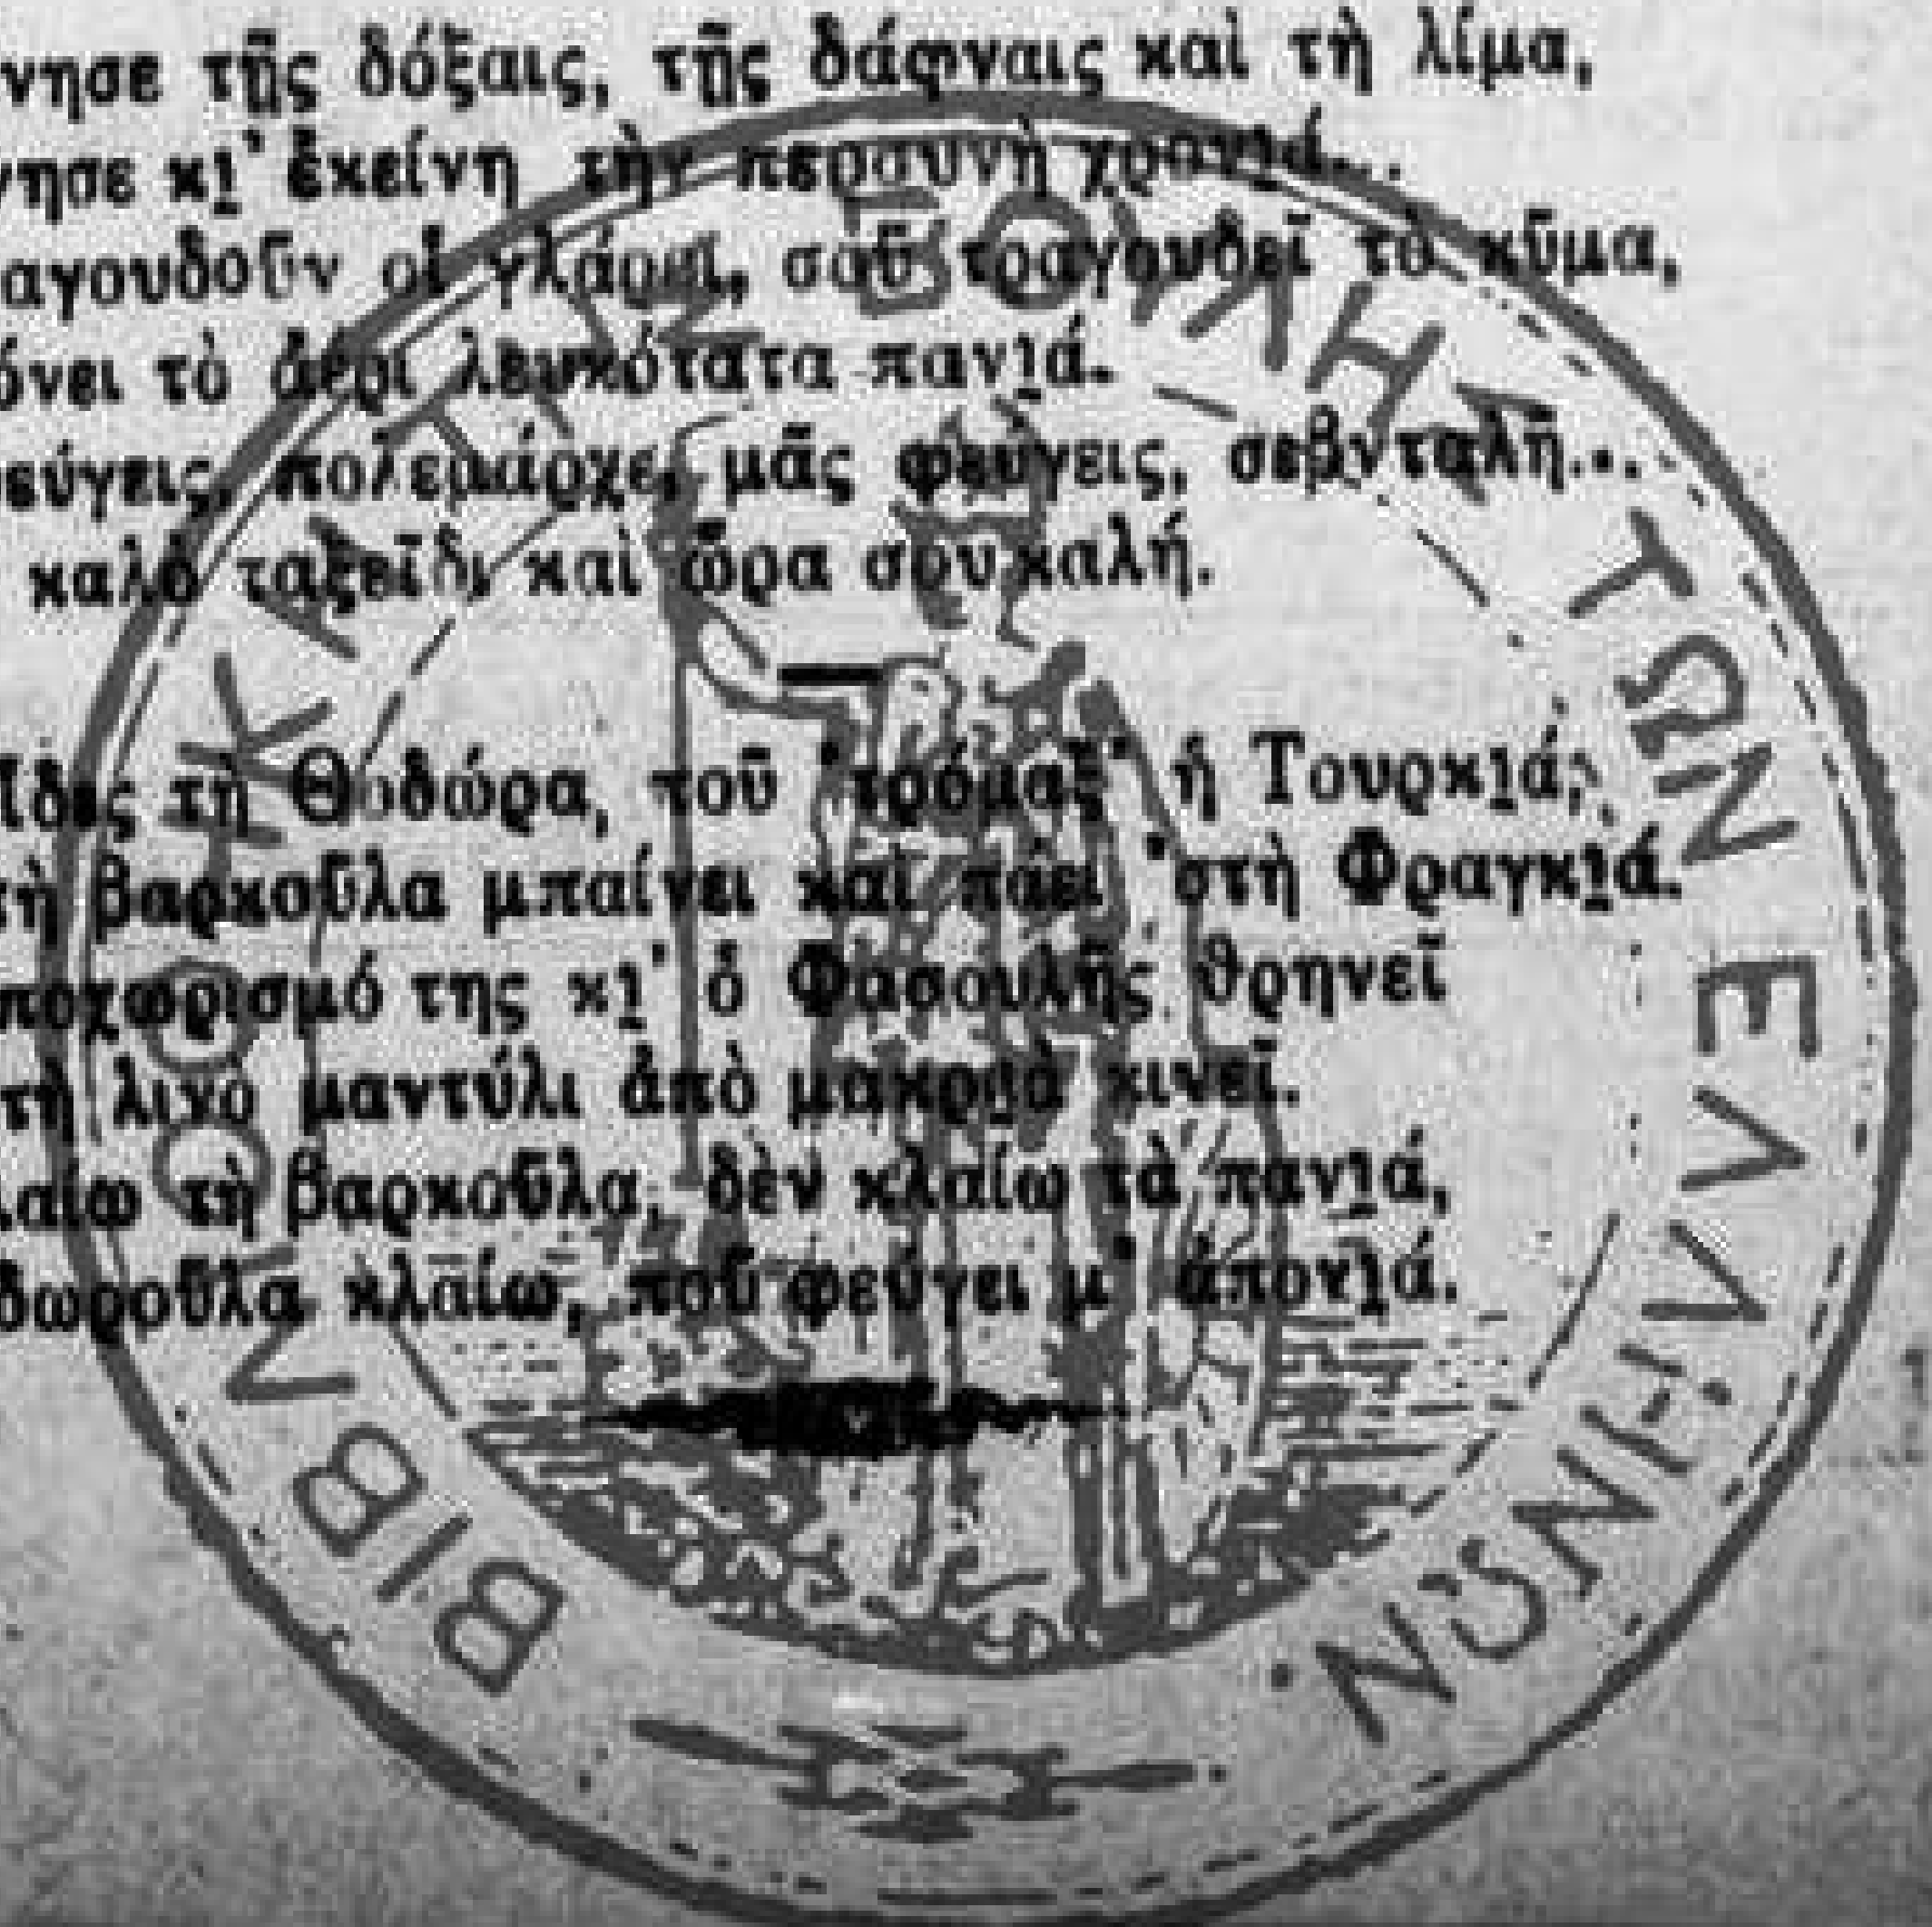 νησε τῇς δόξαις, τῇς δάφναις καὶ τὴ λίμα,
νησε κι̯' ἐκείνη τὴν περσυνὴ χρονι̯ά...
αγουδοῦν οἱ γλάροι, σοῦ τραγουδεῖ τὸ κῦμα,
όνει τὸ ἀέρι λευκότατα πανι̯ά.
εύγεις, πολέμαρχε, μᾶς φεύγεις, σεβνταλῆ...
καλὸ ταξεῖδι καὶ ὥρα σου καλή.
ἶδες τὴ Θοδώρα, τοῦ 'τρόμαξ' ἡ Τουρκι̯ά;
τὴ βαρκοῦλα μπαίνει καὶ πάει 'στὴ Φραγκι̯ά.
ποχωρισμό της κι̯' ὁ Φασουλῆς θρηνεῖ
τὴ λινὸ μαντύλι ἀπὸ μακρι̯ὰ κινεῖ.
λαίω τὴ βαρκοῦλα, δὲν κλαίω τὰ πανι̯ά,
δωροῦλα κλαίω, ποῦ φεύγει μ' ἀπονι̯ά.
ΒΙΒΛΙΟΘΗΚΗ ΤΗΣ ΒΟΥΛΗΣ ΤΩΝ ΕΛΛΗΝΩΝ